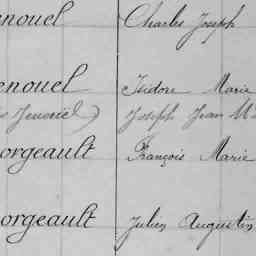 enouel Charles Joseph
enouel Isidore Marie
Jeuvriel) Joseph Jean M
orgeault François Marie
orgeault Julien Augustin